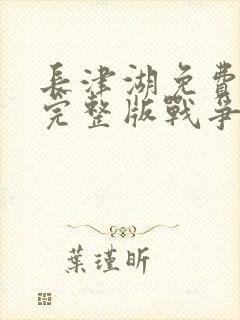 長津湖免費
完整版戰爭
葉瑾昕